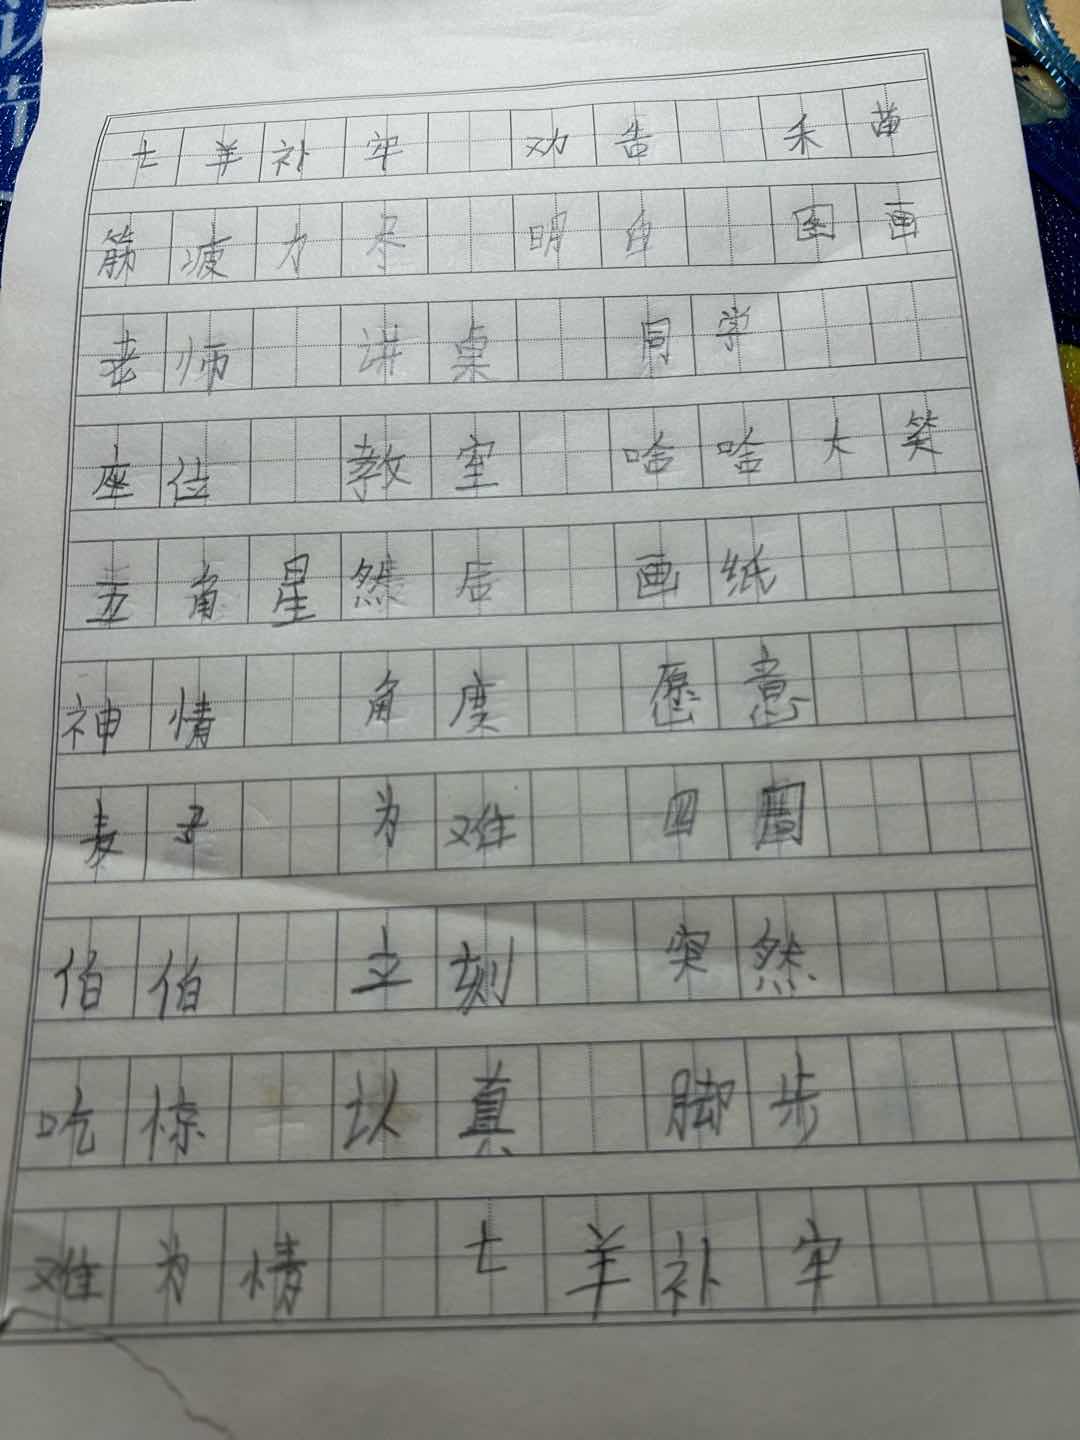 亡羊补牢 劝告 禾苗
筋疲力尽 明白 图画
老师 讲桌 同学
座位 教室 哈哈大笑
五角星然后 画纸
神情 角度 愿意
麦子 为难 四周
伯伯 立刻 突然
吃惊 认真 脚步
难为情 亡羊补牢